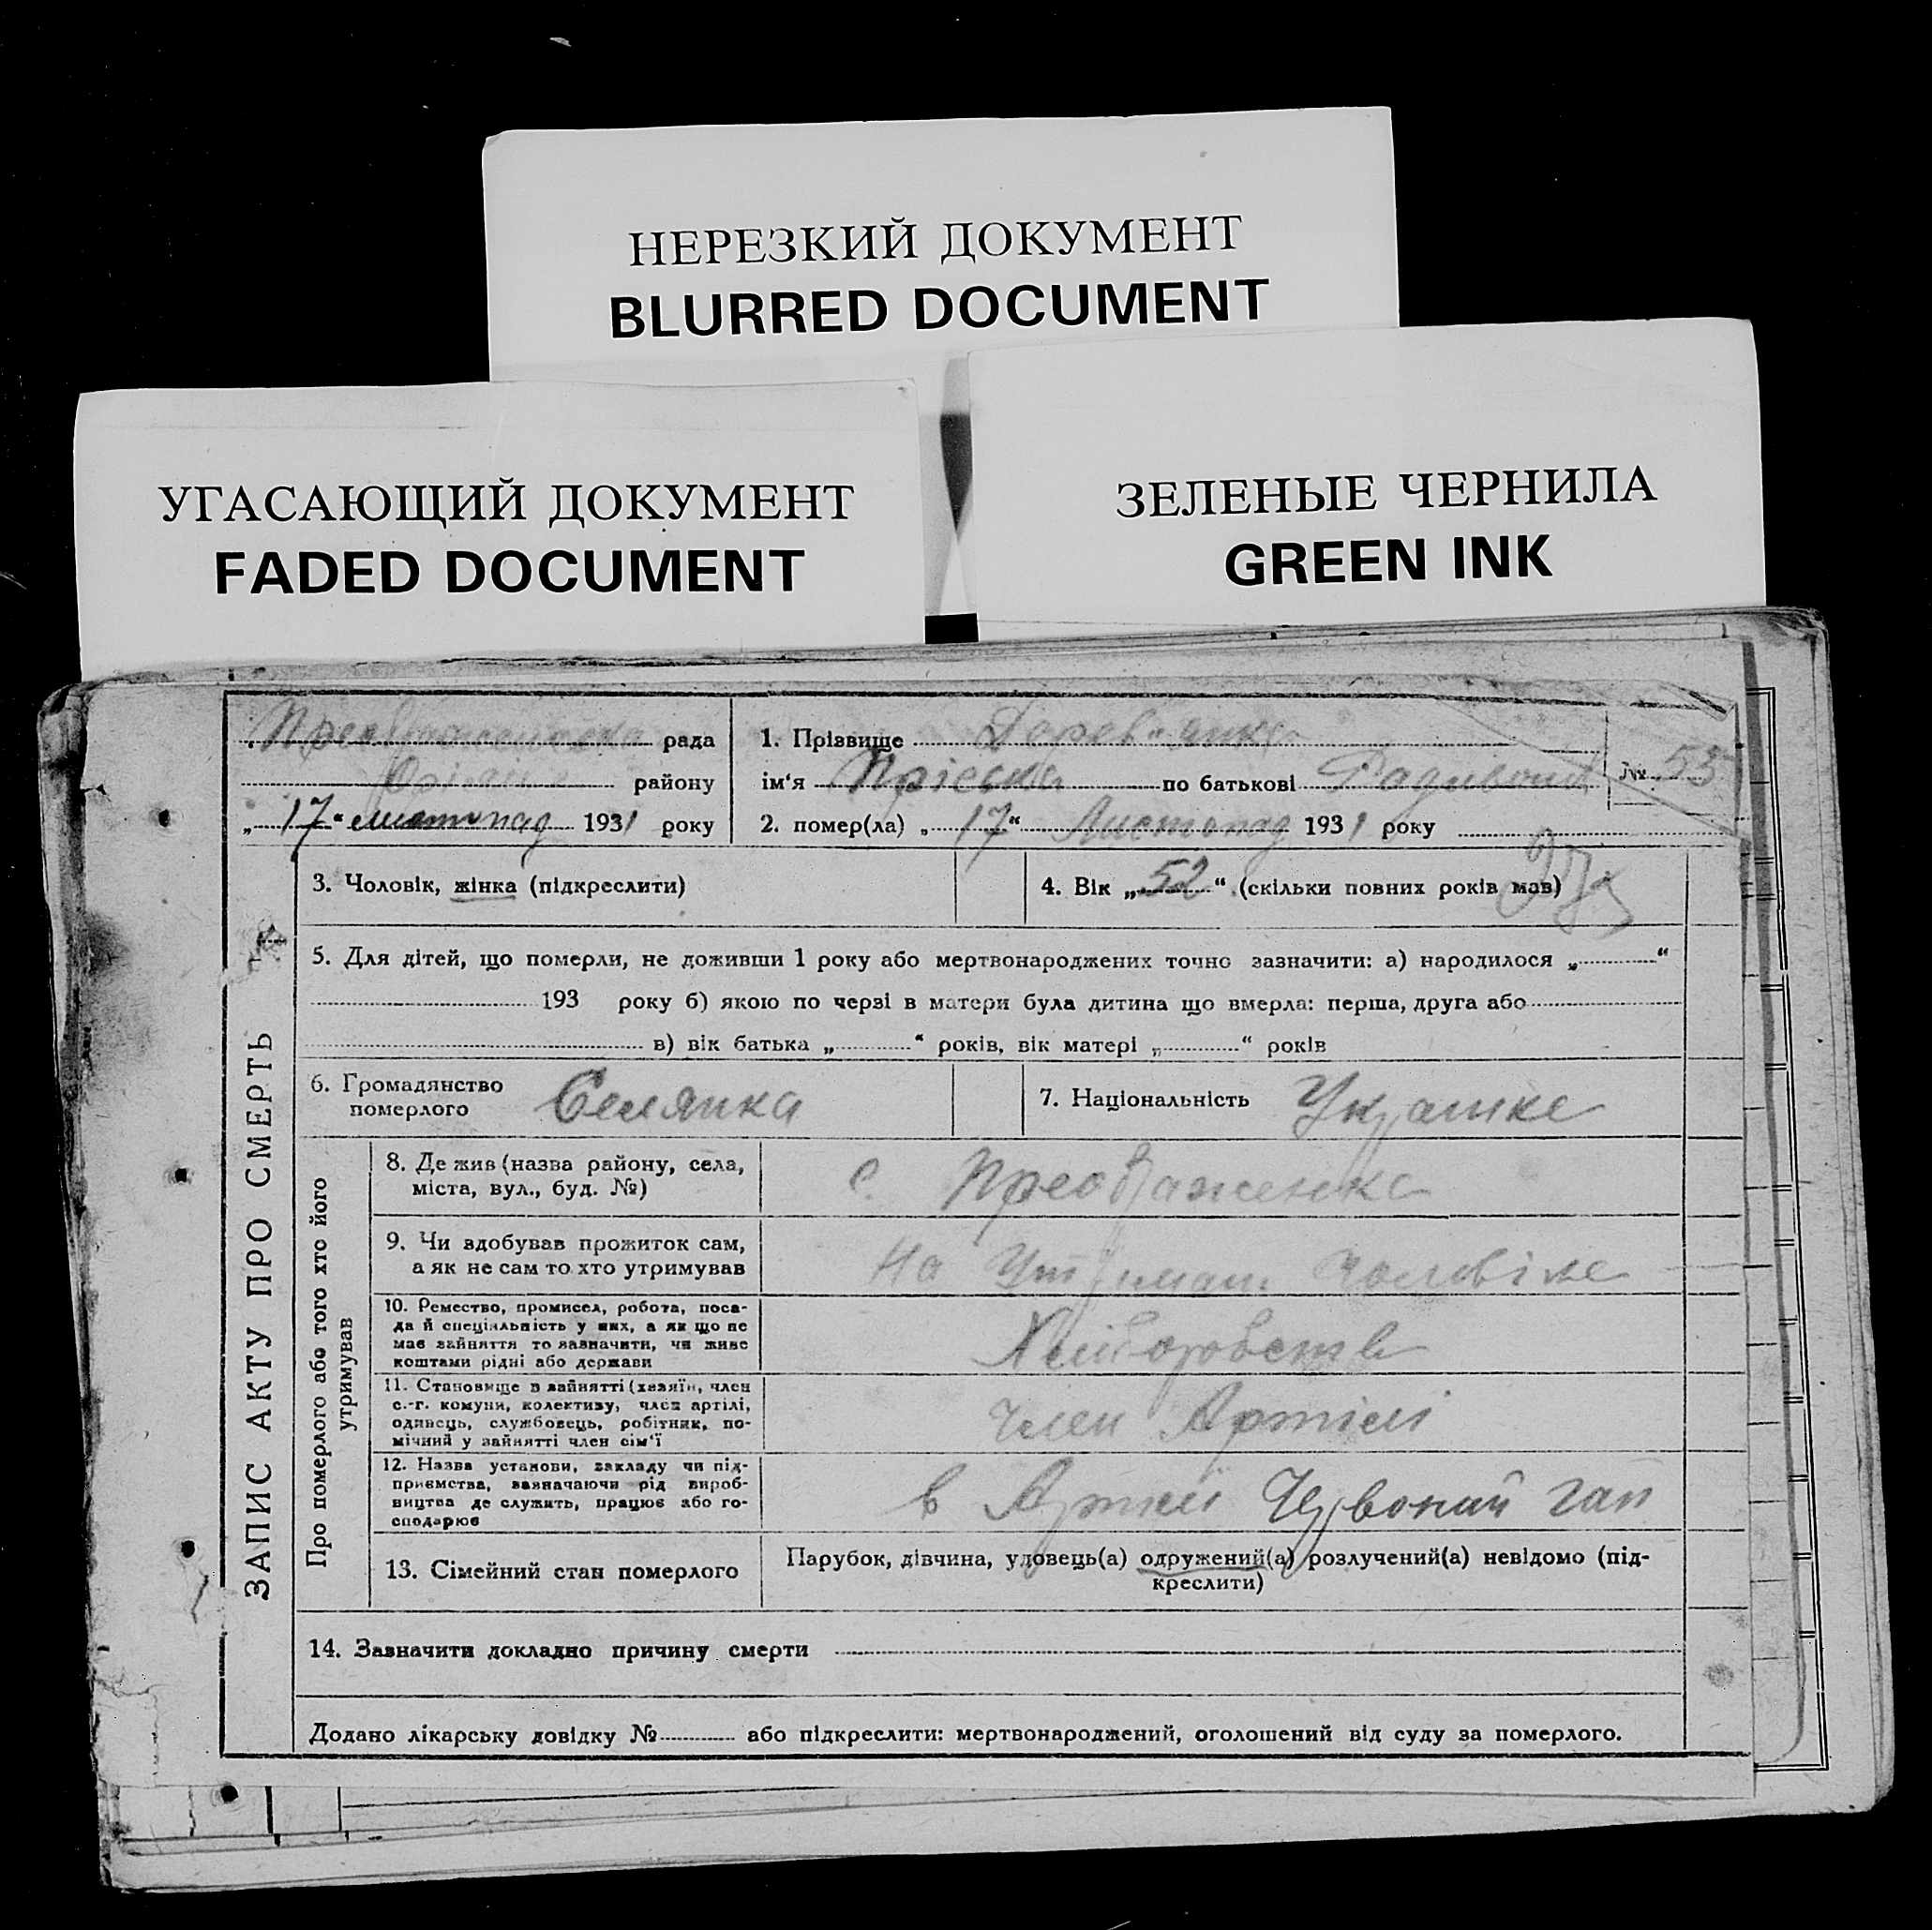 НЕРЕЗКИЙ ДОКУМЕНТ
BLURRED DOCUMENT
УГАСАЮЩИЙ ДОКУМЕНТ
FADED DOCUMENT
ЗЕЛЕНЫЕ ЧЕРНИЛА
GREEN INK
рада
району
„17“ листопад 1931 року
1. Прізвище
ім‘я Пріська по батькові
№ 55
2. помер(ла) „17“ Листопад 1931 року
ЗАПИС АКТУ ПРО СМЕРТЬ
3. Чоловік, жінка (підкреслити)
4. Вік „52“ (скільки повних років мав)
5. Для дітей, що померли, не доживши 1 року або мертвонароджених точно зазначити: а) народилося „ “
193 року б) якою по черзі в матери була дитина що вмерла: перша, друга або
в) вік батька „ “ років, вік матері „ “ років
6. Громадянство
померлого
Селянка
7. Національність
Про померлого або того хто його
утримував
8. Де жив (назва району, села,
міста, вул., буд. №)
с. Преображенка
9. Чи здобував прожиток сам,
а як не сам то хто утримував
На
10. Ремество, промисел, робота, поса-
да й спеціяльність у них, а як що не
має зайняття то зазначити, чи живе
коштами рідні або держави
11. Становище в зайнятті (хазяїн, член
с.-г. комуни, колективу, член артілі,
одинець, службовець, робітник, по-
мічний у зайнятті член сім‘ї
член Артілі
12. Назва установи, закладу чи під-
приємства, зазначаючи рід вироб-
ництва де служить, працює або го-
сподарює
в Артілі Червоний гай
13. Сімейний стан померлого
Парубок, дівчина, удовець(а) одружений(а) розлучений(а) невідомо (під-
креслити)
14. Зазначити докладно причину смерти
Додано лікарську довідку № або підкреслити: мертвонароджений, оголошений від суду за померлого.